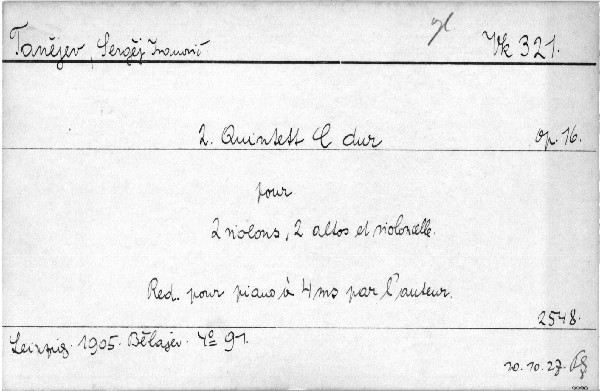 Tanějev, Sergěj Ivanovič Vk 321.
2. Quintett C dur op. 16.
pour
2 violons, 2 altos et violoncelle.
Red. pour piano à 4 ms par l'auteur.
2548.
Leipzig. 1905. Bělajev. 4º 91.
20.10.27.